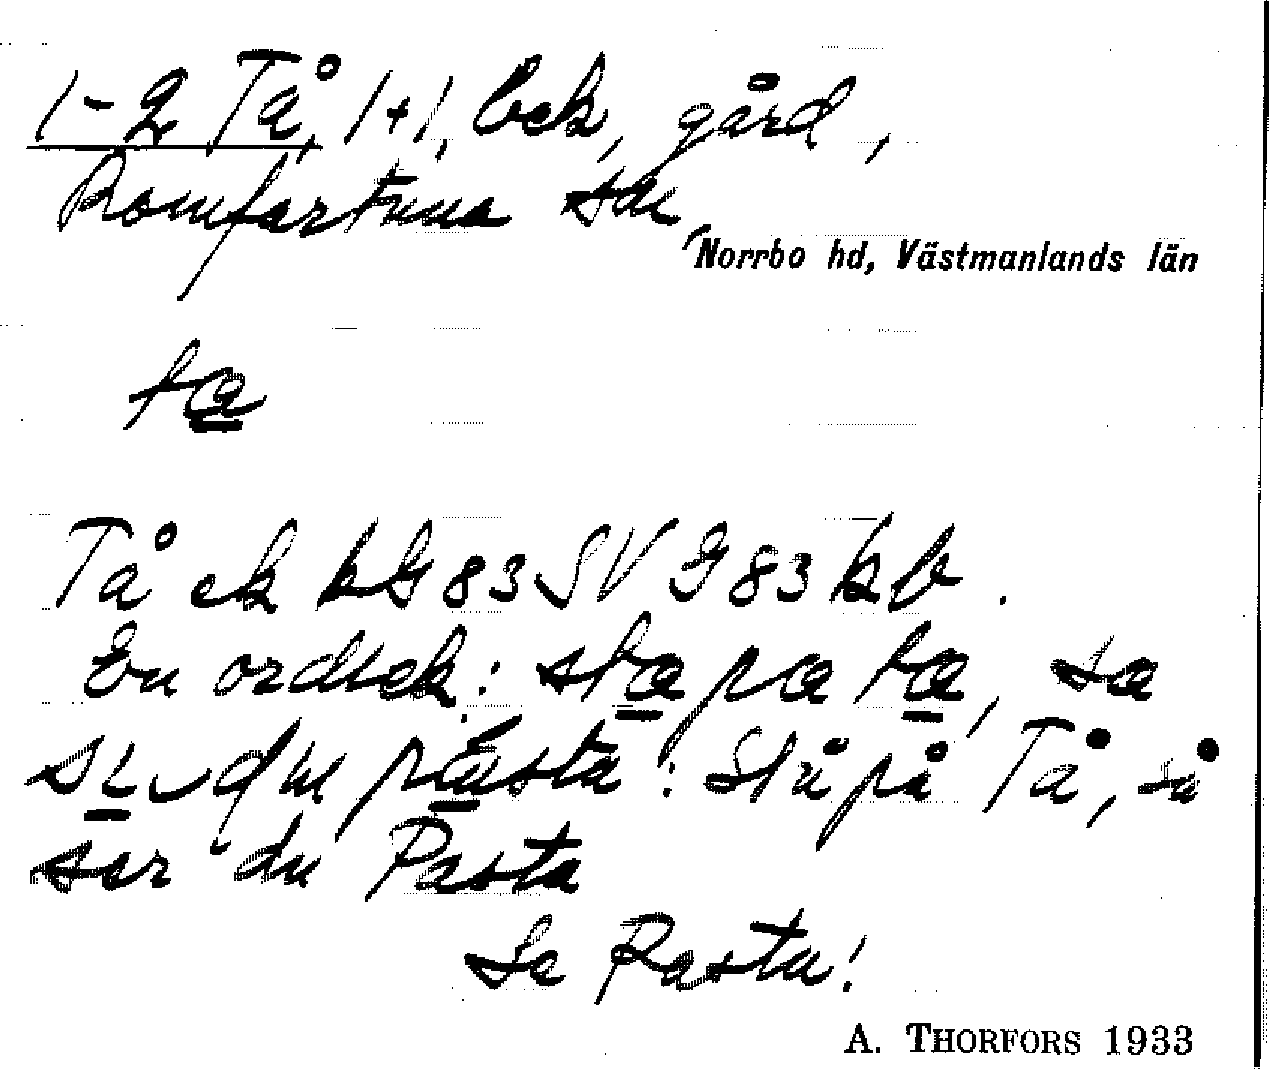 1-2 Tå, 1+1, bek, gård,
Romfartuna sn
Norrbo hd, Västmanlands län
ta
Tå ek kG 83 SV G 83 kb.
En ordlek: sta pa ta, sa
du pasta: Stå på Tå, så
ser du Pasta
Se Pasta!
A. THORFORS 1933